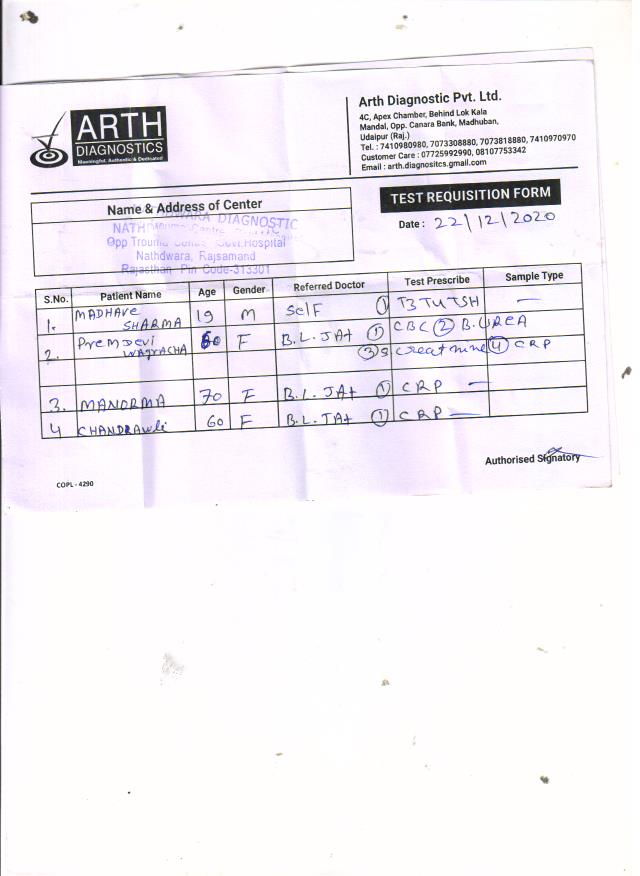 ARTH
DIAGNOSTICS
Meaningful, Authentic & Dedicated
Arth Diagnostic Pvt. Ltd.
4C, Apex Chamber, Behind Lok Kala
Mandal, Opp. Canara Bank, Madhuban,
Udaipur (Raj.)
Tel. : 7410980980, 7073308880, 7073818880, 7410970970
Customer Care : 07725992990, 08107753342
Email : arth.diagnositcs.gmail.com
TEST REQUISITION FORM
Date : 22/12/2020
Name & Address of Center
DIAGNOSTIC
Opp Trouma Hospital
Nathdwara, Rajsamand
Rajasthan Pin Code-313301
S.No. Patient Name Age Gender Referred Doctor Test Prescribe Sample Type
1. MADHAVe SHARMA 19 M SelF ① T3 T4 TSH —
2. PremDevi 60 F B.L.JAt ① CBC ② B.UREA
③ S creatnine ④ CRP
3. MANORMA 70 F B.L.JAt ① CRP —
4 CHANDRAWli 60 F B.L.JAt ① CRP —
Authorised Signatory
COPL - 4290